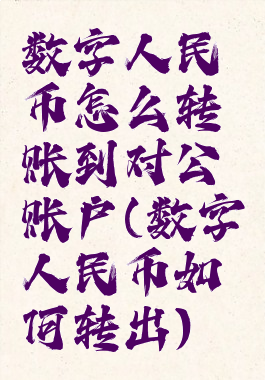 数字人民
币怎么转
账到对公
账户(数字
人民币如
何转出)